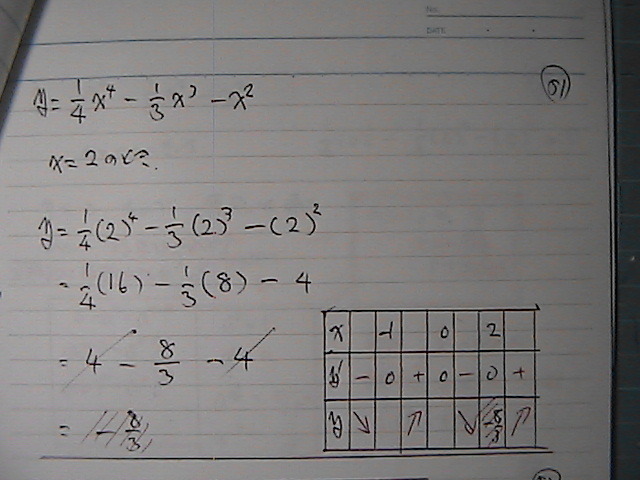 No.
DATE
51
y = 1/4 x⁴ - 1/3 x³ - x²
x = 2 のとき.
y = 1/4 (2)⁴ - 1/3 (2)³ - (2)²
= 1/4 (16) - 1/3 (8) - 4
= 4 - 8/3 - 4
= -8/3
x -1 0 2
y' - 0 + 0 - 0 +
y ↘ ↗ ↘ -8/3 ↗